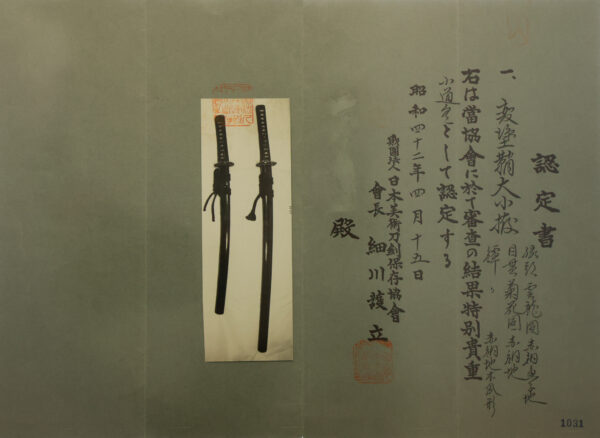 認定書
一、変塗鞘大小拵
縁頭 雲龍図 赤銅魚子地
目貫 菊花図 赤銅地
鐔 〻 赤銅地木瓜形
右は當協會に於て審査の結果特別貴重
小道具として認定する
昭和四十二年四月十五日
財團法人日本美術刀剣保存協會
會長 細川護立
殿
1031